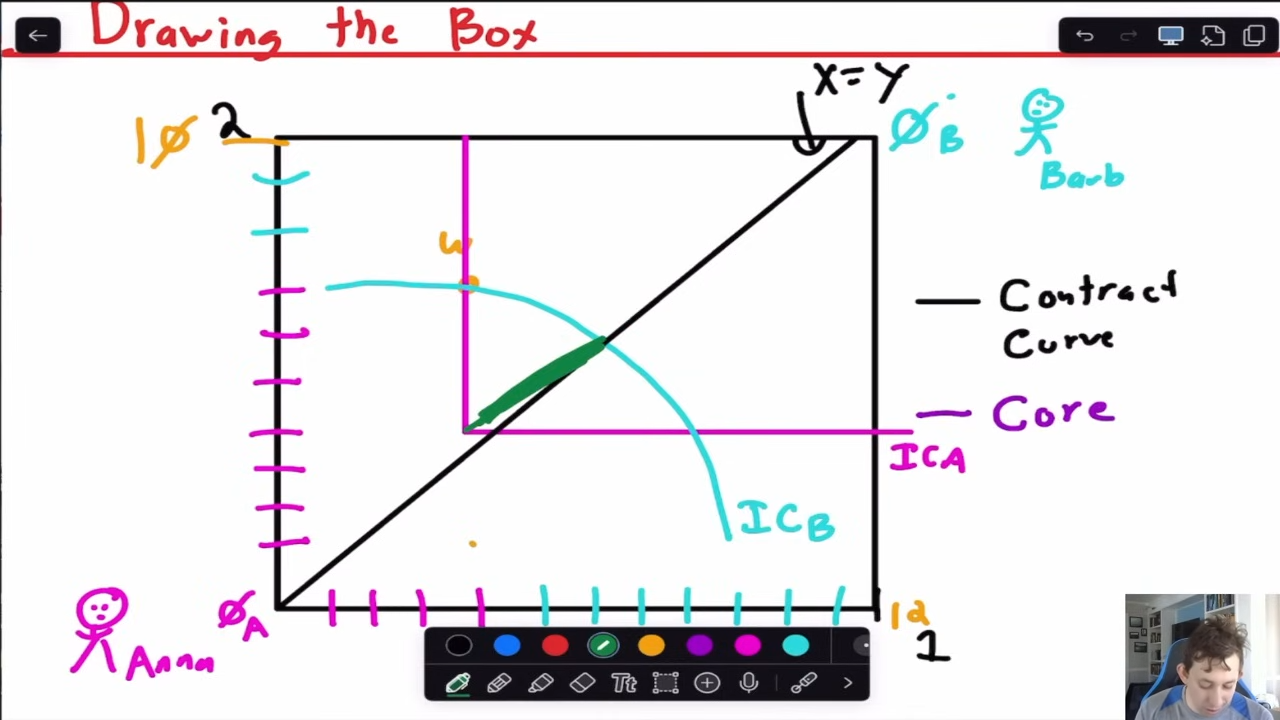 Drawing the Box
X=Y
10 2
ØB
Barb
W
Contract
Curve
Core
ICA
ICB
ØA
Anna
12
1
Tt